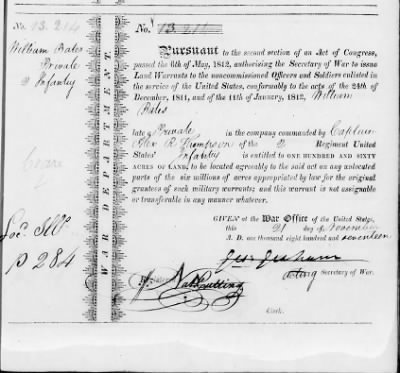 No. 13.214
William Bates
Private
2 Infantry
Loc. Ills
p 284
WAR DEPARTMENT.
No. 13.214
Pursuant to the second section of an Act of Congress,
passed the 6th of May, 1812, authorising the Secretary of War to issue
Land Warrants to the noncommissioned Officers and Soldiers enlisted in
the service of the United States, conformably to the acts of the 24th of
December, 1811, and of the 11th of January, 1812, William
Bates
late a Private in the company commanded by Captain
R Thompson of the 2 Regiment United
States' Infantry is entitled to ONE HUNDRED AND SIXTY
ACRES OF LAND, to be located agreeably to the said act on any unlocated
parts of the six millions of acres appropriated by law for the original
grantees of such military warrants; and this warrant is not assignable
or transferable in any manner whatever.
GIVEN at the War Office of the United States,
this 21 day of November
A. D. one thousand eight hundred and seventeen.
Geo: Graham
acting Secretary of War.
Nat Cutting
Clerk.